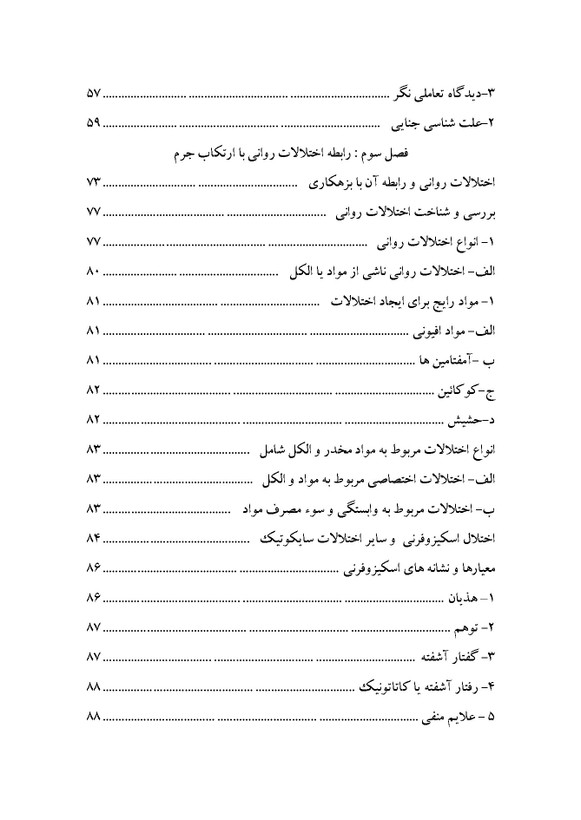 ۳-دیدگاه تعاملی نگر ........................................................................ ۵۷
۲-علت شناسی جنایی ........................................................................ ۵۹
فصل سوم : رابطه اختلالات روانی با ارتکاب جرم
اختلالات روانی و رابطه آن با بزهکاری ........................................................................ ۷۳
بررسی و شناخت اختلالات روانی ........................................................................ ۷۷
۱- انواع اختلالات روانی ........................................................................ ۷۷
الف- اختلالات روانی ناشی از مواد یا الکل ........................................................................ ۸۰
۱- مواد رایج برای ایجاد اختلالات ........................................................................ ۸۱
الف- مواد افیونی ........................................................................ ۸۱
ب -آمفتامین ها ........................................................................ ۸۱
ج-کوکائین ........................................................................ ۸۲
د-حشیش ........................................................................ ۸۲
انواع اختلالات مربوط به مواد مخدر و الکل شامل ........................................................................ ۸۳
الف- اختلالات اختصاصی مربوط به مواد و الکل ........................................................................ ۸۳
ب- اختلالات مربوط به وابستگی و سوء مصرف مواد ........................................................................ ۸۳
اختلال اسکیزوفرنی و سایر اختلالات سایکوتیک ........................................................................ ۸۴
معیارها و نشانه های اسکیزوفرنی ........................................................................ ۸۶
۱- هذیان ........................................................................ ۸۶
۲- توهم ........................................................................ ۸۷
۳- گفتار آشفته ........................................................................ ۸۷
۴- رفتار آشفته یا کاتاتونیک ........................................................................ ۸۸
۵ - علایم منفی ........................................................................ ۸۸